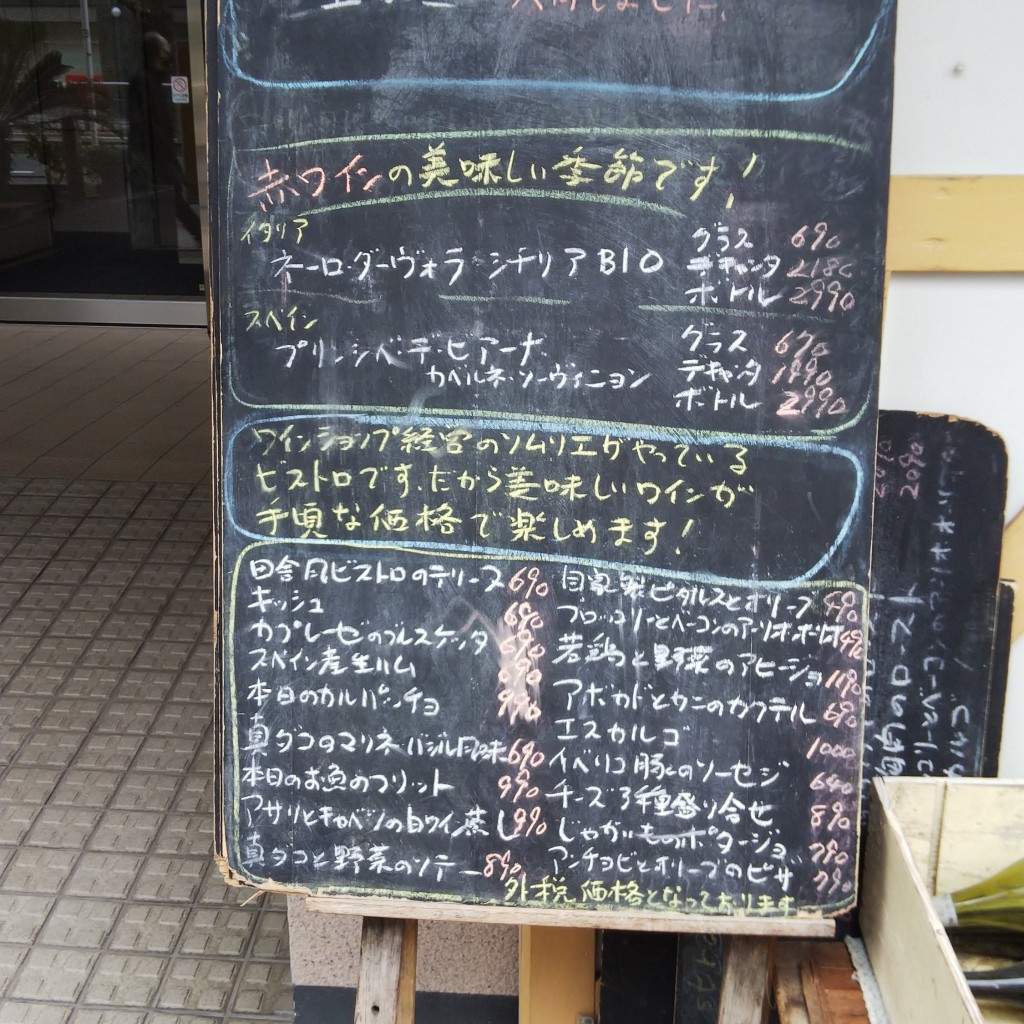 入荷しました。
赤ワインの美味しい季節です!
イタリア
ネーロ・ダーヴォラ・シチリア BIO
グラス 690
デキャンタ 2180
ボトル 2990
スペイン
プリンシペ・デ・ビアーナ
カベルネ・ソーヴィニヨン
グラス 670
デキャンタ 1990
ボトル 2990
ワインショップ経営のソムリエがやっている
ビストロです。だから美味しいワインが
手頃な価格で楽しめます!
田舎風ビストロのテリーヌ 690
キッシュ 690
カプレーゼのブルスケッタ 690
スペイン産生ハム 890
本日のカルパッチョ 990
真ダコのマリネ バジル風味 690
本日のお魚のフリット 990
アサリとキャベツの白ワイン蒸し 990
真ダコと野菜のソテー 890
自家製ピクルスとオリーブ 490
ブロッコリーとベーコンのアーリオオーリオ 490
若鶏と野菜のアヒージョ 1190
アボカドとウニのカクテル 690
エスカルゴ 1000
イベリコ豚のソーセジ 640
チーズ3種盛り合せ 890
じゃがいものポタージュ 790
アンチョビとオリーブのピザ 790
外税価格となっております
2090
のロースト